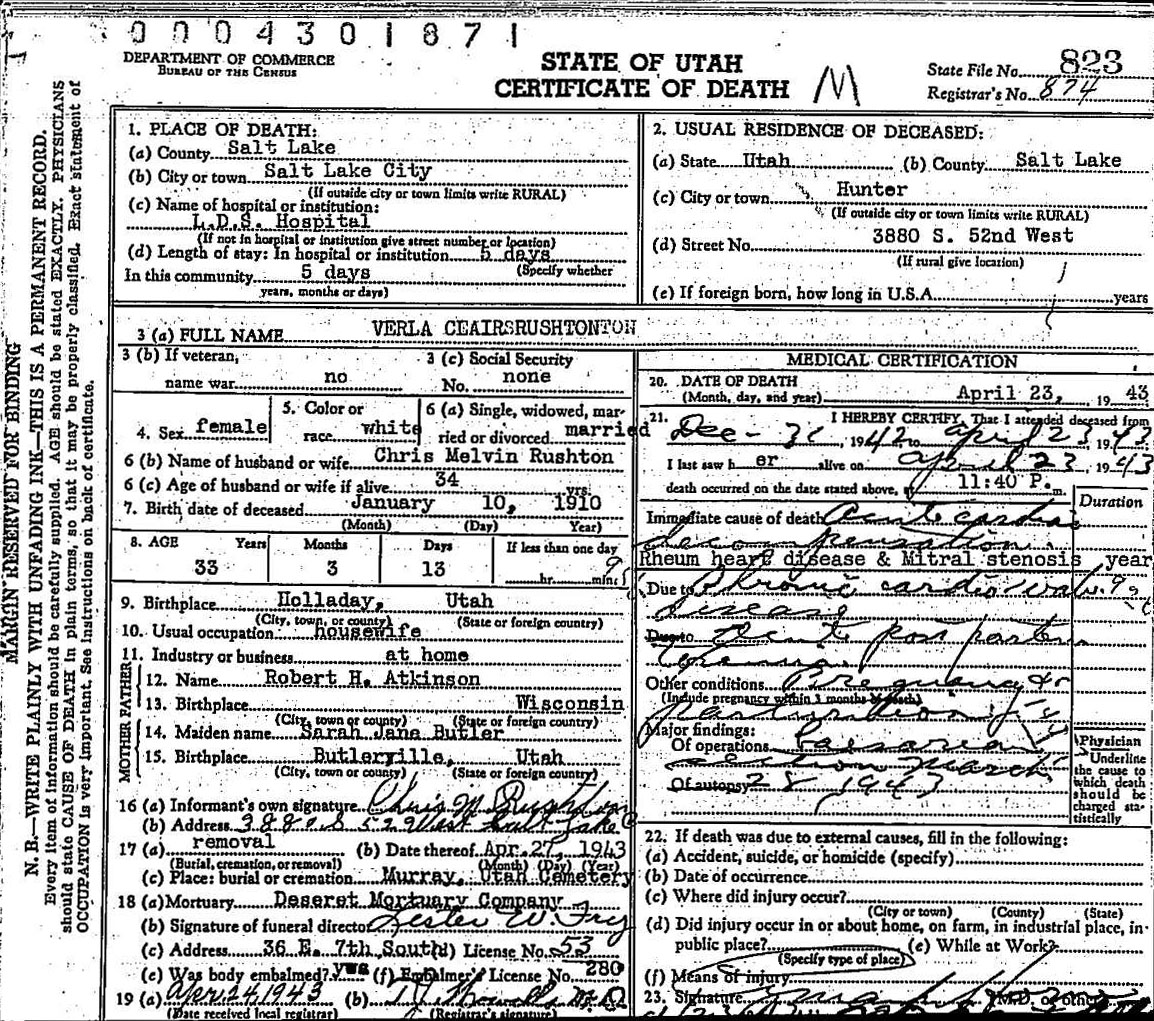 0004301871
DEPARTMENT OF COMMERCE
BUREAU OF THE CENSUS
STATE OF UTAH
CERTIFICATE OF DEATH
M
State File No. 823
Registrar's No. 874
MARGIN RESERVED FOR BINDING
N. B.—WRITE PLAINLY WITH UNFADING INK—THIS IS A PERMANENT RECORD.
Every item of information should be carefully supplied. AGE should be stated EXACTLY. PHYSICIANS
should state CAUSE OF DEATH in plain terms, so that it may be properly classified. Exact statement of
OCCUPATION is very important. See instructions on back of certificate.
1. PLACE OF DEATH:
(a) County Salt Lake
(b) City or town Salt Lake City
(If outside city or town limits write RURAL)
(c) Name of hospital or institution:
L.D.S. Hospital
(If not in hospital or institution give street number or location)
(d) Length of stay: In hospital or institution 5 days
(Specify whether
In this community 5 days
years, months or days)
2. USUAL RESIDENCE OF DECEASED:
(a) State Utah (b) County Salt Lake
(c) City or town Hunter
(If outside city or town limits write RURAL)
(d) Street No. 3880 S. 52nd West
(If rural give location)
(e) If foreign born, how long in U.S.A. years
3 (a) FULL NAME VERLA CEAIRSRUSHTONTON
3 (b) If veteran, name war no
3 (c) Social Security No. none
4. Sex female
5. Color or race white
6 (a) Single, widowed, married or divorced married
6 (b) Name of husband or wife Chris Melvin Rushton
6 (c) Age of husband or wife if alive 34 yrs.
7. Birth date of deceased January 10, 1910
(Month) (Day) Year)
8. AGE Years Months Days If less than one day
33 3 13 hr. min.
9. Birthplace Holladay, Utah
(City, town, or county) (State or foreign country)
10. Usual occupation housewife
11. Industry or business at home
MOTHER FATHER
12. Name Robert H. Atkinson
13. Birthplace Wisconsin
(City, town or county) (State or foreign country)
14. Maiden name Sarah Jane Butler
15. Birthplace Butlerville, Utah
(City, town or county) (State or foreign country)
16 (a) Informant's own signature Chris M Rushton
(b) Address 3880 S 52 West Salt Lake C
17 (a) removal (b) Date thereof Apr. 27, 1943
(Burial, cremation, or removal) (Month) (Day) (Year)
(c) Place: burial or cremation Murray, Utah Cemetery
18 (a) Mortuary Deseret Mortuary Company
(b) Signature of funeral director Lester W. Fry
(c) Address 36 E. 7th South (d) License No. 53
(e) Was body embalmed? yes (f) Embalmer's License No. 280
19 (a) Apr. 24 1943 (b)
(Date received local registrar) (Registrar's signature)
MEDICAL CERTIFICATION
20. DATE OF DEATH
(Month, day, and year) April 23, 19 43
21. I HEREBY CERTIFY, That I attended deceased from
Dec - 31, 1942 to April 23 1943
I last saw h er alive on April 23, 1943
death occurred on the date stated above, at 11:40 P. m.
Duration
Immediate cause of death Acute cardiac
decompensation
Rheum heart disease & Mitral stenosis year
Due to Chronic cardio valv.
disease
Due to Acute post partem
Other conditions Pregnancy &
(Include pregnancy within 3 months of death)
parturition
Major findings:
Of operations Caesarean
section March
Of autopsy 28 1943
Physician
Underline
the cause to
which death
should be
charged sta-
tistically
22. If death was due to external causes, fill in the following:
(a) Accident, suicide, or homicide (specify)
(b) Date of occurrence
(c) Where did injury occur?
(City or town) (County) (State)
(d) Did injury occur in or about home, on farm, in industrial place, in-
public place? (e) While at Work?
(Specify type of place)
(f) Means of injury
23. Signature M.D. or other